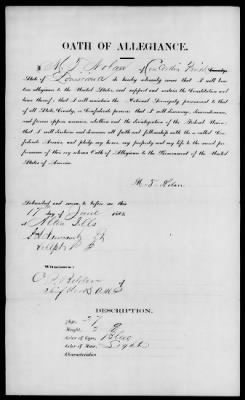 OATH OF ALLEGIANCE.
I, M. T. Nolan of
State of Louisiana do hereby solemnly swear that I will bear
true allegiance to the United States, and support and sustain the Constitution and
laws thereof; that I will maintain the National Sovereignty paramount to that
of all State, County, or Confederate powers; that I will discourage, discountenance,
and forever oppose secession, rebellion and the disintegration of the Federal Union;
that I will disclaim and denounce all faith and fellowship with the so-called Confed-
erate Armies, and pledge my honor, my property and my life to the sacred per-
formance of this my solemn Oath of Allegiance to the Government of the United
States of America.
M. T. Nolan
Subscribed and sworn to before me this
17 day of June 186
at Alton Ills
WITNESSES:
DESCRIPTION.
Age, 27
Height, 5
Color of Eyes, Blue
Color of Hair, Light
Characteristics